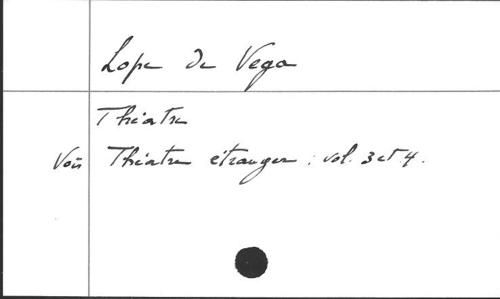 Lope de Vega
Théatre
Voir Théatre étranger : vol. 3 et 4.